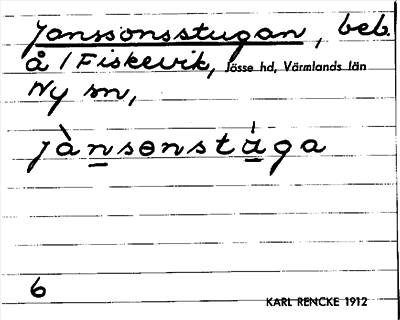 Janssonsstugan, beb.
å /Fiskevik, Jösse hd, Värmlands län
Ny sn,
jànsɵnstá̱ga
6
KARL RENCKE 1912